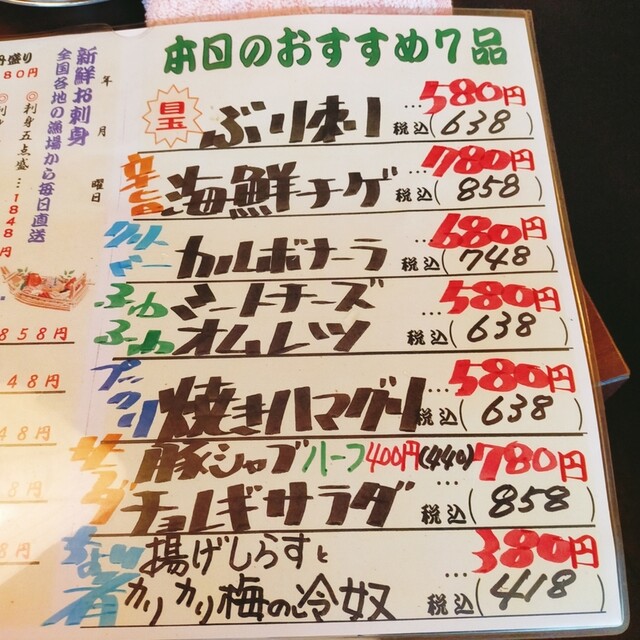 本日のおすすめ7品
目玉
ぶり刺り
…580円
税込(638)
辛旨
海鮮チゲ
…780円
税込(858)
クリーミー
カルボナーラ
…680円
税込(748)
ふわふわ
ミートチーズ
オムレツ
…580円
税込(638)
プックリ
焼きハマグリ
…580円
税込(638)
サラダ
豚シャブ ハーフ400円(440)
チョレギサラダ
…780円
税込(858)
揚げしらすと
カリカリ梅の冷奴
…380円
税込(418)
新鮮お刺身
全国各地の漁場から毎日直送
年 月 曜日
◎刺身五点盛…1848
80円
円
858円
48円
48円
8円
8円